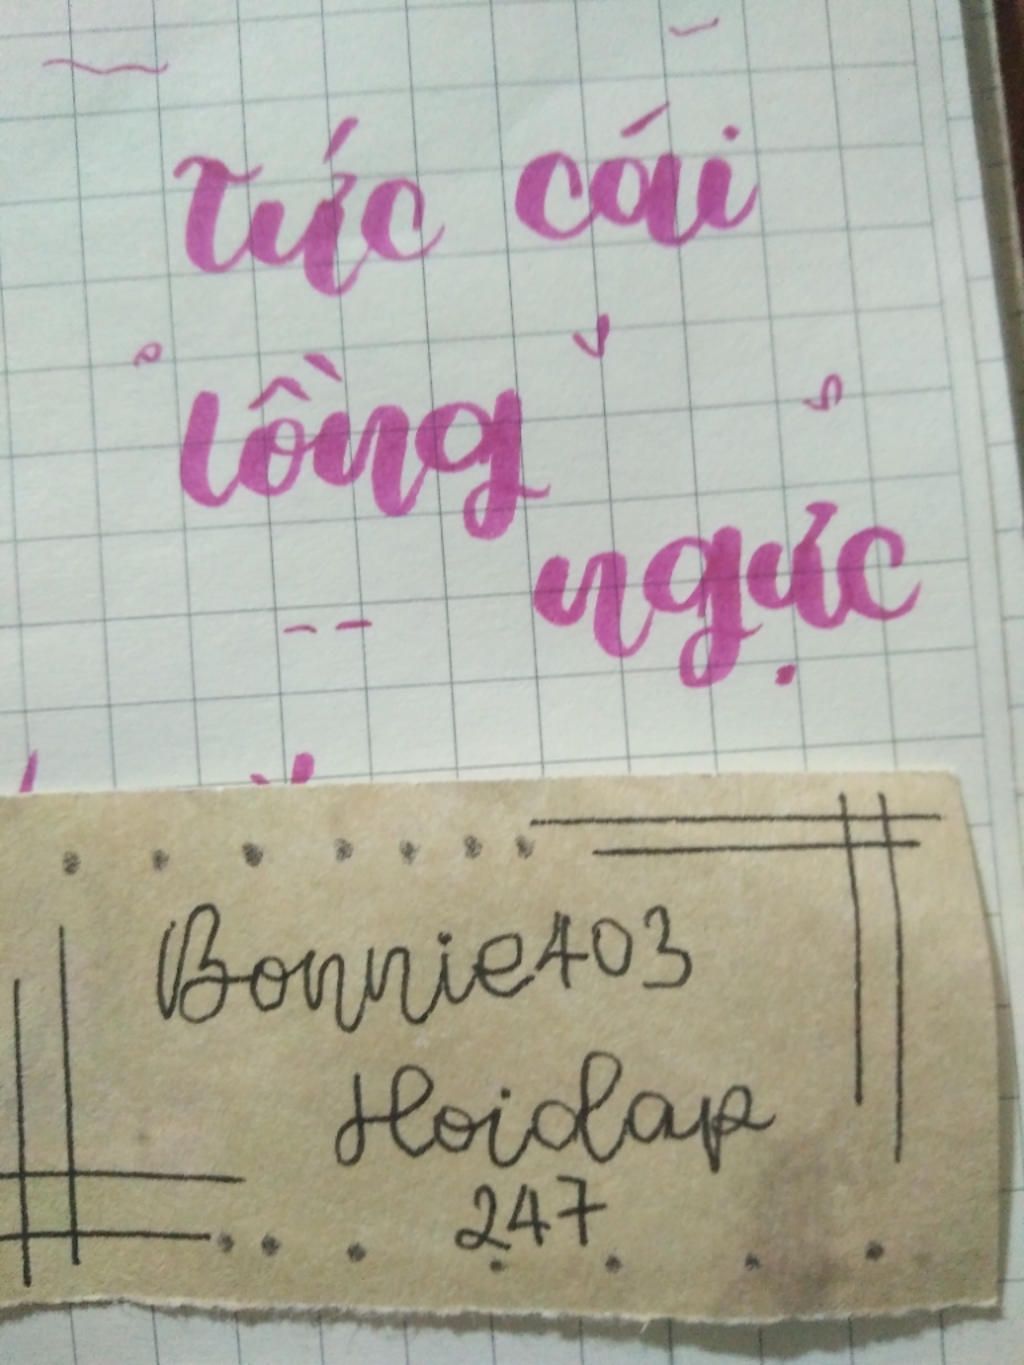 Tức cái
lồng
ngực
Bonnie403
Hoidap
247